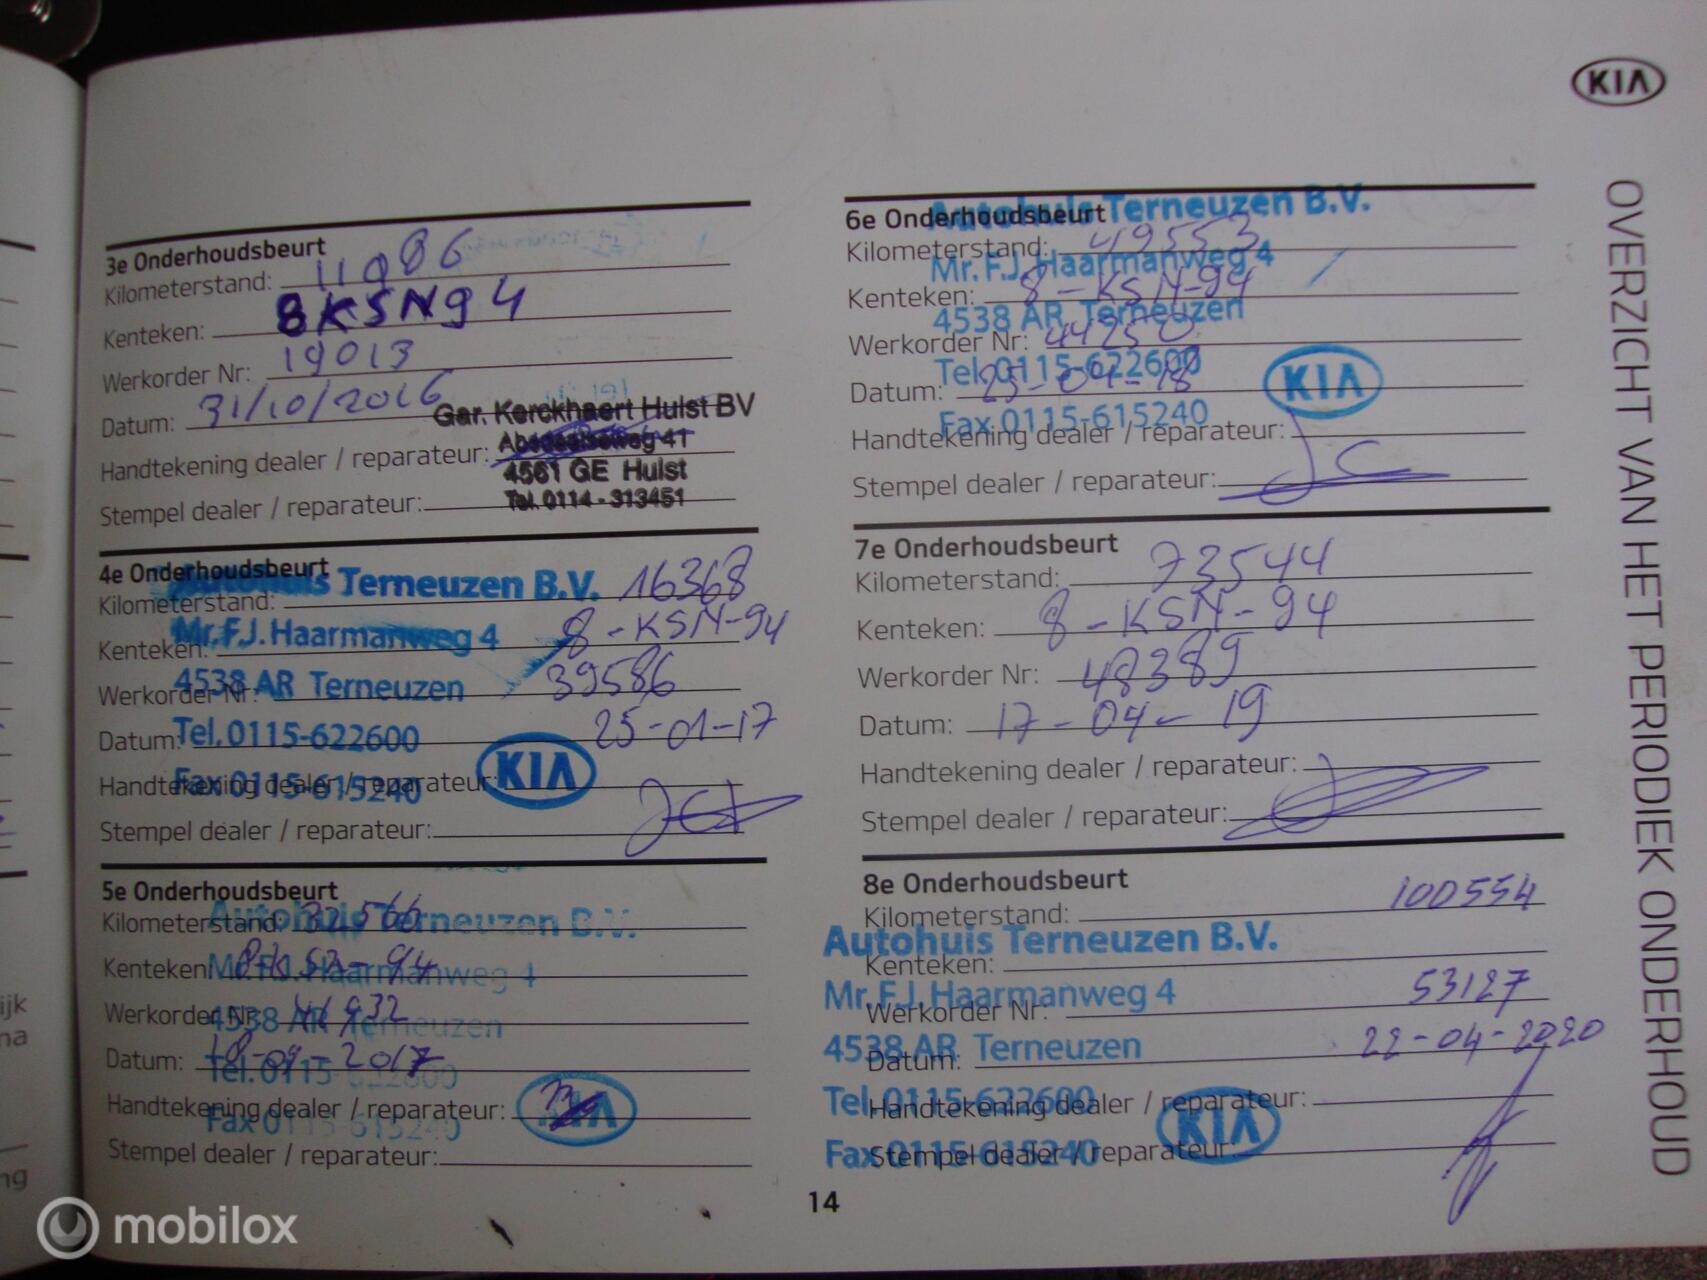 KIA
OVERZICHT VAN HET PERIODIEK ONDERHOUD
3e Onderhoudsbeurt
Kilometerstand: 11906
Kenteken: 8KSN94
Werkorder Nr: 19013
Datum: 31/10/2016
Gar. Kerckhaert Hulst BV
Handtekening dealer / reparateur:
4561 GE Hulst
Tel. 0114 - 313451
Stempel dealer / reparateur:
4e Onderhoudsbeurt
Autohuis Terneuzen B.V.
Kilometerstand: 16368
Mr. F.J. Haarmanweg 4
Kenteken: 8-KSN-94
4538 AR Terneuzen
Werkorder Nr: 39586
Tel. 0115-622600
Datum: 25-01-17
Fax 0115-615240
KIA
Handtekening dealer / reparateur:
Stempel dealer / reparateur:
5e Onderhoudsbeurt
Autohuis Terneuzen B.V.
Kilometerstand: 32566
Mr. F.J. Haarmanweg 4
Kenteken:
4538 AR Terneuzen
Werkorder Nr:
Datum: 18-09-2017
Tel. 0115-622600
Handtekening dealer / reparateur:
KIA
Fax 0115-615240
Stempel dealer / reparateur:
6e Onderhoudsbeurt
Autohuis Terneuzen B.V.
Kilometerstand: 49553
Mr. F.J. Haarmanweg 4
Kenteken: 8-KSN-94
4538 AR Terneuzen
Werkorder Nr: 44250
Tel. 0115-622600
Datum: 25-04-18
KIA
Fax 0115-615240
Handtekening dealer / reparateur:
Stempel dealer / reparateur:
7e Onderhoudsbeurt
Kilometerstand: 73544
Kenteken: 8-KSN-94
Werkorder Nr: 48389
Datum: 17-04-19
Handtekening dealer / reparateur:
Stempel dealer / reparateur:
8e Onderhoudsbeurt
Kilometerstand: 100554
Autohuis Terneuzen B.V.
Kenteken:
Mr. F.J. Haarmanweg 4
Werkorder Nr: 53127
4538 AR Terneuzen
Datum: 22-04-2020
Tel. 0115-622600
Handtekening dealer / reparateur:
KIA
Fax 0115-615240
Stempel dealer / reparateur:
14
ijk
na
ng
mobilox